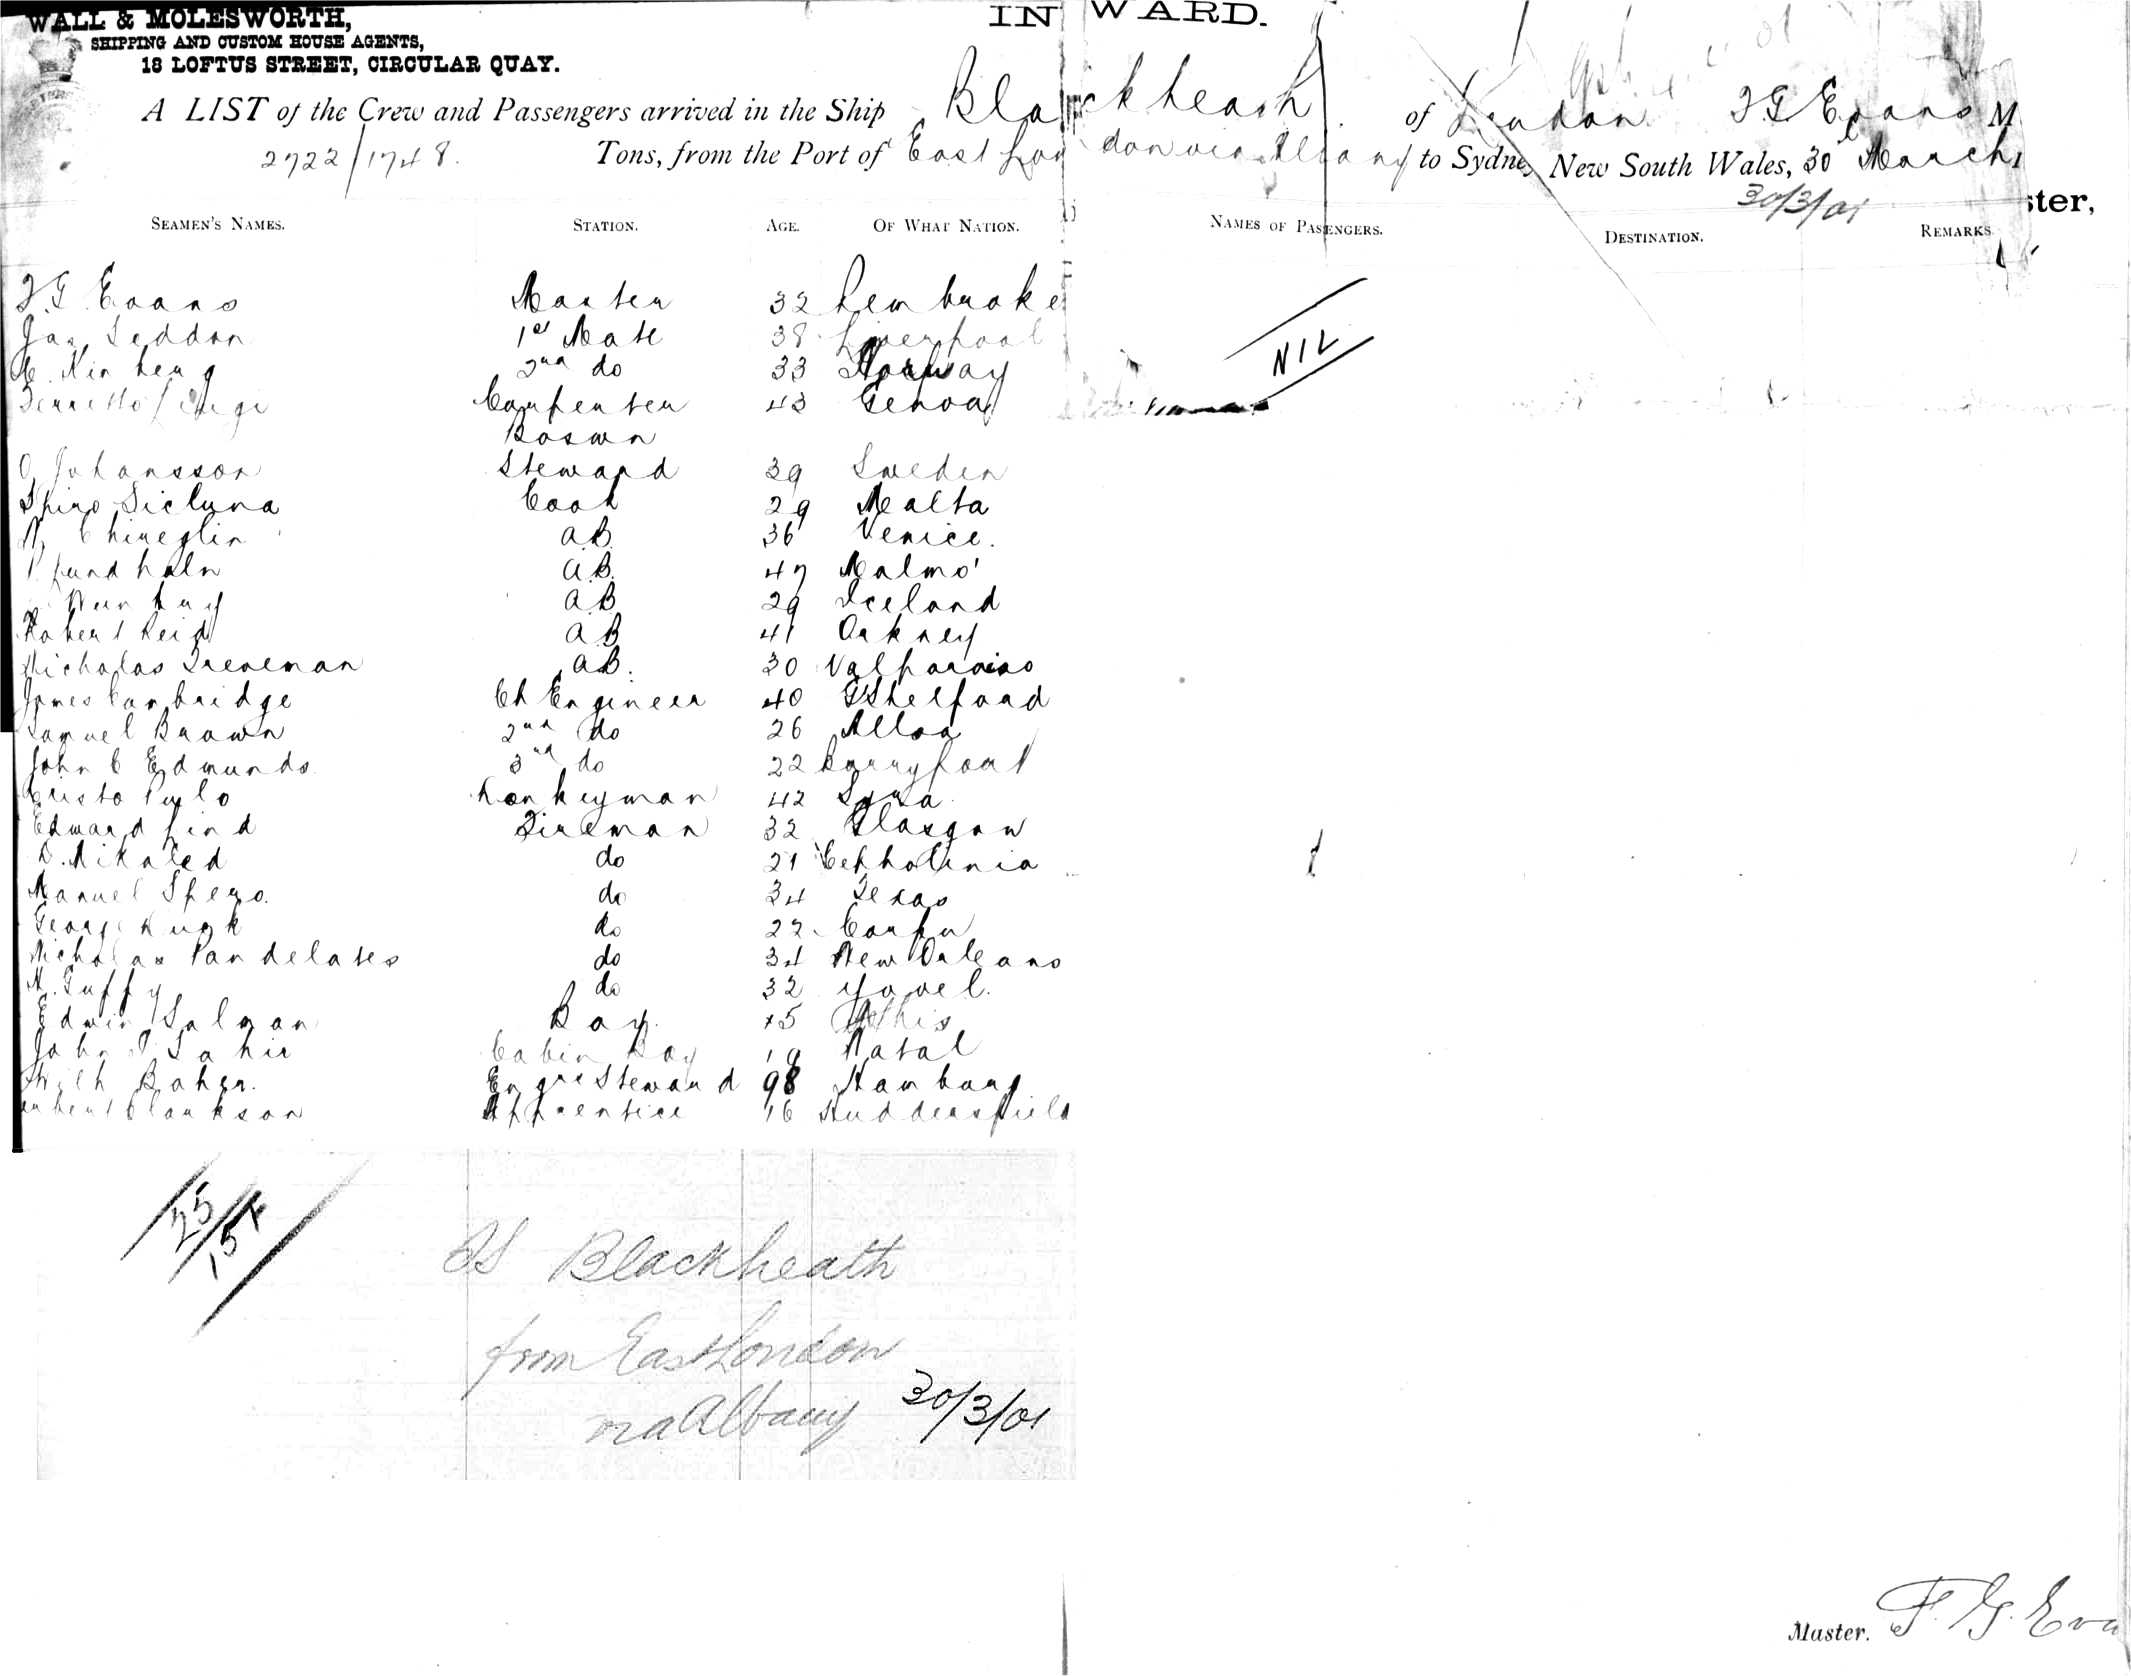 WALL & MOLESWORTH,
SHIPPING AND CUSTOM HOUSE AGENTS,
18 LOFTUS STREET, CIRCULAR QUAY.
INWARD.
A LIST of the Crew and Passengers arrived in the Ship Blackheath of London F G Evans M
2722/1748. Tons, from the Port of East London via Albany to Sydney New South Wales, 30th March 1
30/3/01
ster,
SEAMEN'S NAMES. STATION. AGE. OF WHAT NATION. NAMES OF PASSENGERS. DESTINATION. REMARKS.
F. G. Evans Master 32 Pembroke
Jas Seddon 1st Mate 38 Liverpool
2nd do 33 Norway
Carpenter 43 Genoa
NIL
Boswn
O Johansson Steward 39 Sweden
Spiro Sicluna Cook 29 Malta
A.B. 36 Venice.
P. Lundholm A.B. 47 Malmo
A.B 29 Iceland
Robert Reid A.B 41 Orkney
Nicholas A.B. 30 Valparaiso
James Cambridge Ch Engineer 40 Shelford
Samuel Brown 2nd do 26 Alloa
John C Edmunds 3rd do 22 Burryport
Cristo Donkeyman 42 Syra
Edward Lind Fireman 32 Glasgow
D. Mikaled do 21 Cephalinia
Manuel Spero. do 34 Texas
George Kurk do 22 Corfu
Nicholas Pandelates do 34 New Orleans
M. Guffy do 32 Yovel.
Edwin Salman Boy 15
John Cabin Boy 19 Natal
Baker. Engrs Steward 98 Hamburg
Clarkson Apprentice 16 Huddersfield
25/157
SS Blackheath
from East London
via Albany 30/3/01
Master. F. G. Eva